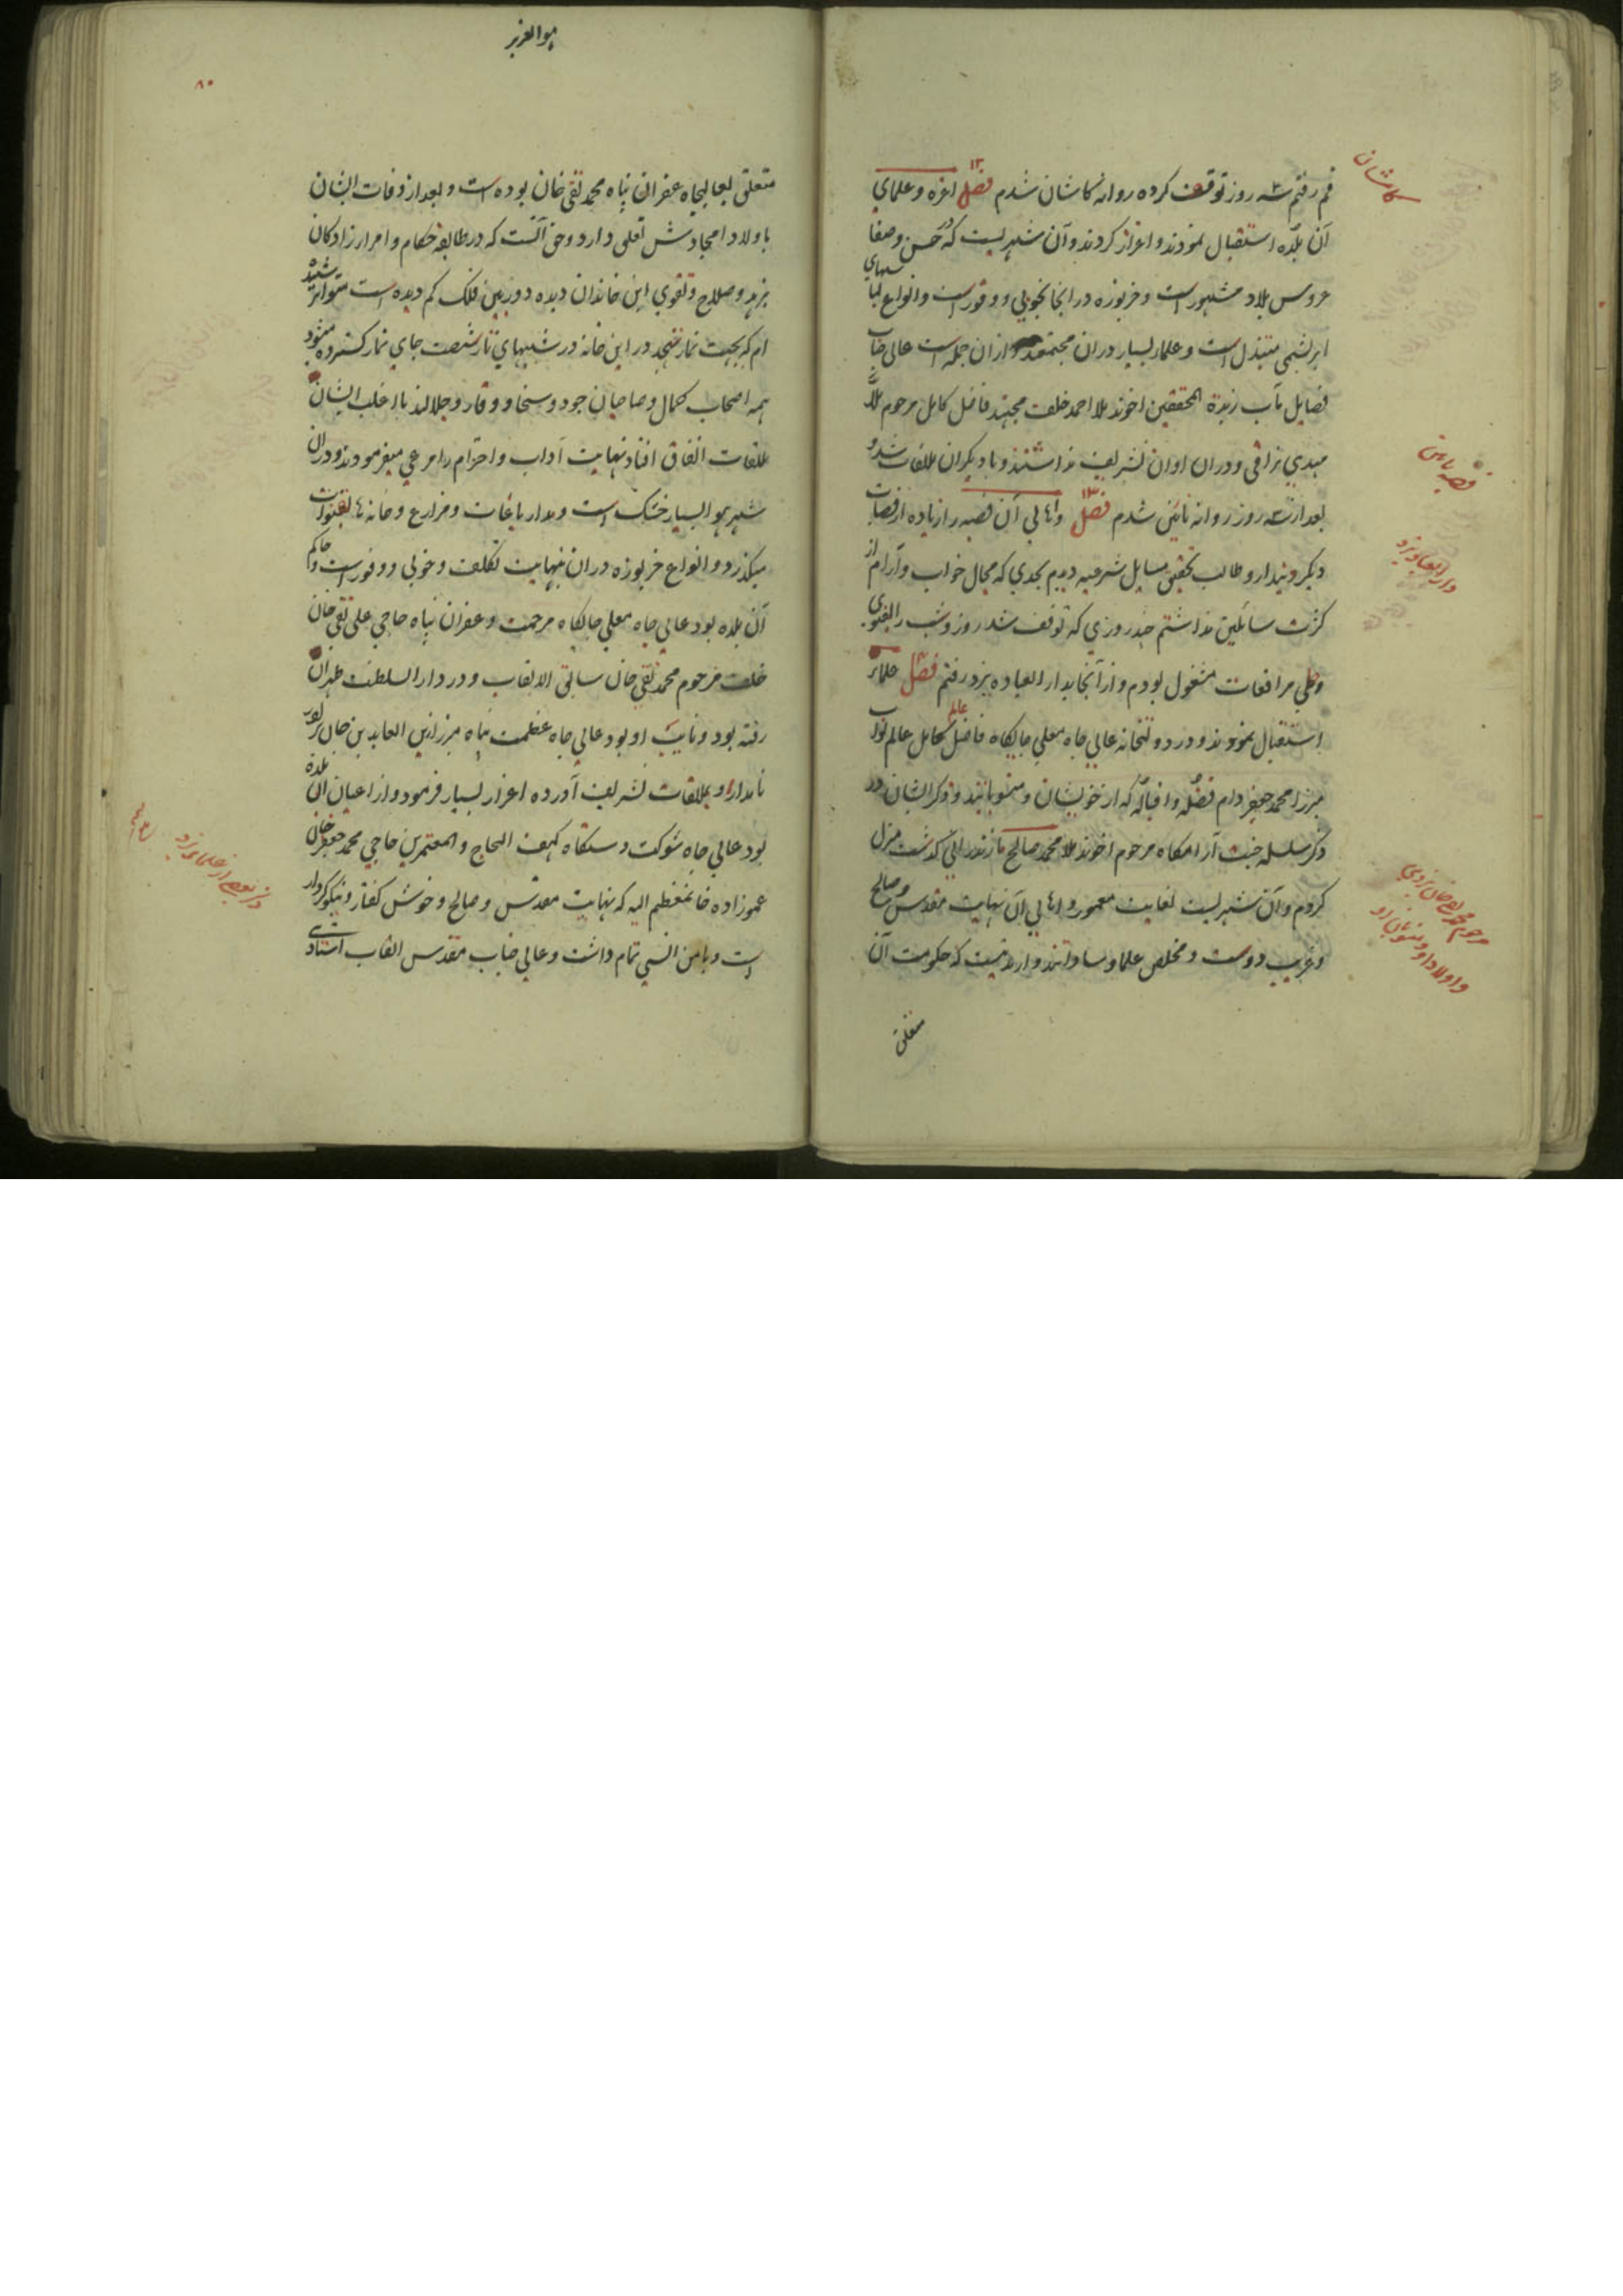 قم رفتم سه روز توقف کرده روانه کاشان شدم فصل ۱۲ اعزه و علمای
کاشان
آن بلده استقبال نمودند و اعزاز کردند و آن شهریست که در حسن و صفا
عروس بلاد مشهور است و خربوزه در انجا بخوبی و وفور است و انواع لباسهای
ابریشمی مبتذل است و علمای بسیار دران مجتمعند و ازان جمله است عالی جناب
فضایل مآب زبدة المحققین اخوند ملا احمد خلف مجتهد فاضل کامل مرحوم ملا
مهدی نراقی و دران اوان تشریف نداشتند و با دیگران ملاقات شد و
قصبه نائین
بعد از سه روز روانه نائین شدم فصل ۱۳ و اهالی آن قصبه را زیاده از قصبات
دیگر دیندار و طالب تحقیق مسایل شرعیه دیدم بحدی که مجال خواب و آرام از
دار العباد یزد
کثرت سائلین نداشتم چند روزی که توقف شد روز و شب را بفتوی
و طی مرافعات مشغول بودم و از آنجا بدار العباده یزد رفتم فصل علماء
استقبال نمودند و در دولتخانه عالی جاه معلی جایگاه فاضل کامل عالم نواب
میرزا محمد جعفر دام فضله و اقباله که از خویشان و منسوبانند و ذکر ایشان در
ذکر سلسله جنت آرامگاه مرحوم اخوند ملا محمد صالح مازندرانی گذشت منزل
کردم و آن شهریست بغایت معمور و اهالی آن نهایت مقدس و صالح
مرحوم محمد تقی خان یزدی
و اولاد او و منسوبان او
و غریب دوست و مخلص علما و ساداتند و از مدتیست که حکومت آن
متعلق
هو العزیز
۸۰
متعلق بعالیجاه غفران پناه محمد تقی خان بوده است و بعد از وفات ایشان
باولاد امجادش تعلق دارد و حق آنست که در طایفه حکام و امرا زادگان
بزهد و صلاح و تقوی این خاندان دیده دوربین فلک کم دیده است متواتر شنیده
ام که بجهت نماز تهجد در این خانه در شبهای تار شصت جای نماز گسترده میشود
همه اصحاب کمال و صاحبان جود و سخا و وقار و جلالند با اغلب ایشان
ملاقات اتفاق افتاد نهایت آداب و احترام را مرعی میفرمودند و دران
شهر هوا بسیار خشک است و مدار باغات و مزارع و خانه ها بقنوات
میگذرد و انواع خربوزه دران نهایت تکلف و خوبی و وفور است و حاکم
آن بلده بود عالی جاه معلی جایگاه مرحمت و غفران پناه حاجی علی نقی خان
خلف مرحوم محمد تقی خان سابق الالقاب و در دار السلطنت طهران
رفته بود و نایب او بود عالی جاه عظمت پناه میرزا زین العابدین خان پور
نامدار او بملاقات تشریف آورده اعزاز بسیار فرمود و از اعیان آن بلده
بود عالی جاه شوکت دستگاه کهف الحاج و المعتمرین حاجی محمد جعفر خان
ذکر بعضی از علمای یزد
عموزاده خان معظم الیه که نهایت مقدس و صالح و خوش گفتار و نیکو کردار
است و با من انسی تمام داشت و عالی جناب مقدس القاب استادی